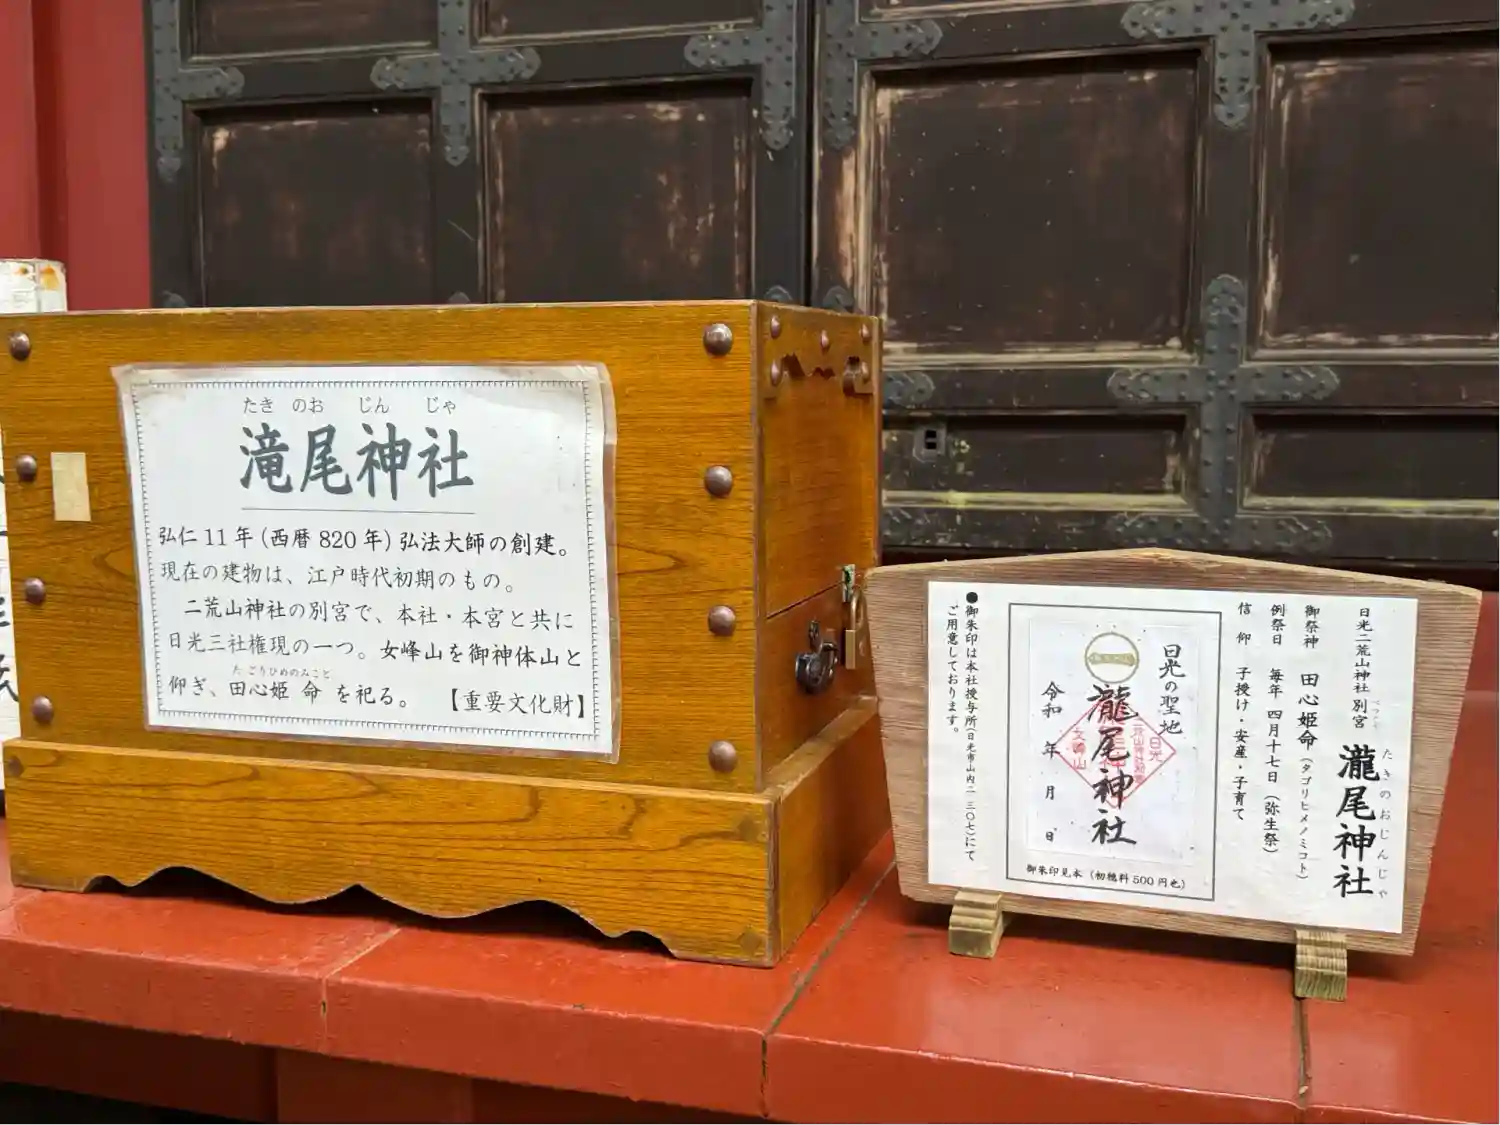 たき のお じん じゃ
滝尾神社
弘仁11年(西暦820年)弘法大師の創建。
現在の建物は、江戸時代初期のもの。
二荒山神社の別宮で、本社・本宮と共に
日光三社権現の一つ。女峰山を御神体山と
たごりひめのみこと
仰ぎ、田心姫命を祀る。【重要文化財】
日光二荒山神社 別宮 瀧尾神社
たきのおじんじゃ
御祭神 田心姫命(タゴリヒメノミコト)
例祭日 毎年 四月十七日(弥生祭)
信仰 子授け・安産・子育て
日光の聖地
瀧尾神社
日光
女峰山
令和 年 月 日
御朱印見本(初穂料500円也)
●御朱印は本社授与所(日光市山内二三〇七)にて
ご用意しております。